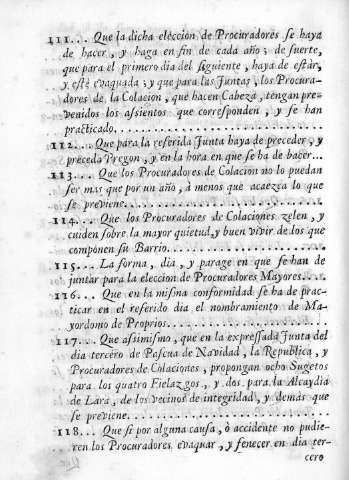 111... Que la dicha eleccion de Procuradores se haya
de hacer, y haga en fin de cada año; de suerte,
que para el primero dia del siguiente, haya de estàr,
y estè evaquada; y que para las Juntas, los Procura-
dores de la Colacion, que hacen Cabeza, tengan pre-
venidos los assientos que corresponden, y se han
practicado.
112... Que para la referida Junta haya de preceder, y
preceda Pregon, y en la hora en que se ha de hacer...
113... Que los Procuradores de Colacion no lo puedan
ser mas que por un año, à menos que acaezca lo que
se previene.
114... Que los Procuradores de Colaciones zelen, y
cuiden sobre la mayor quietud, y buen vivir de los que
componen su Barrio.
115... La forma, dia, y parage en que se han de
juntar para la eleccion de Procuradores Mayores.
116... Que en la misma conformidad se ha de prac-
ticar en el referido dia el nombramiento de Ma-
yordomo de Proprios.
117... Que assimismo, que en la expressada Junta del
dia tercero de Pascua de Navidad, la Republica, y
Procuradores de Colaciones, propongan ocho Sugetos
para los quatro Fielazgos, y dos para la Alcaydia
de Lara, de los vecinos de integridad, y demás que
se previene.
118... Que si por alguna causa, ò accidente no pudie-
ren los Procuradores evaquar, y fenecer en dia ter-
cero